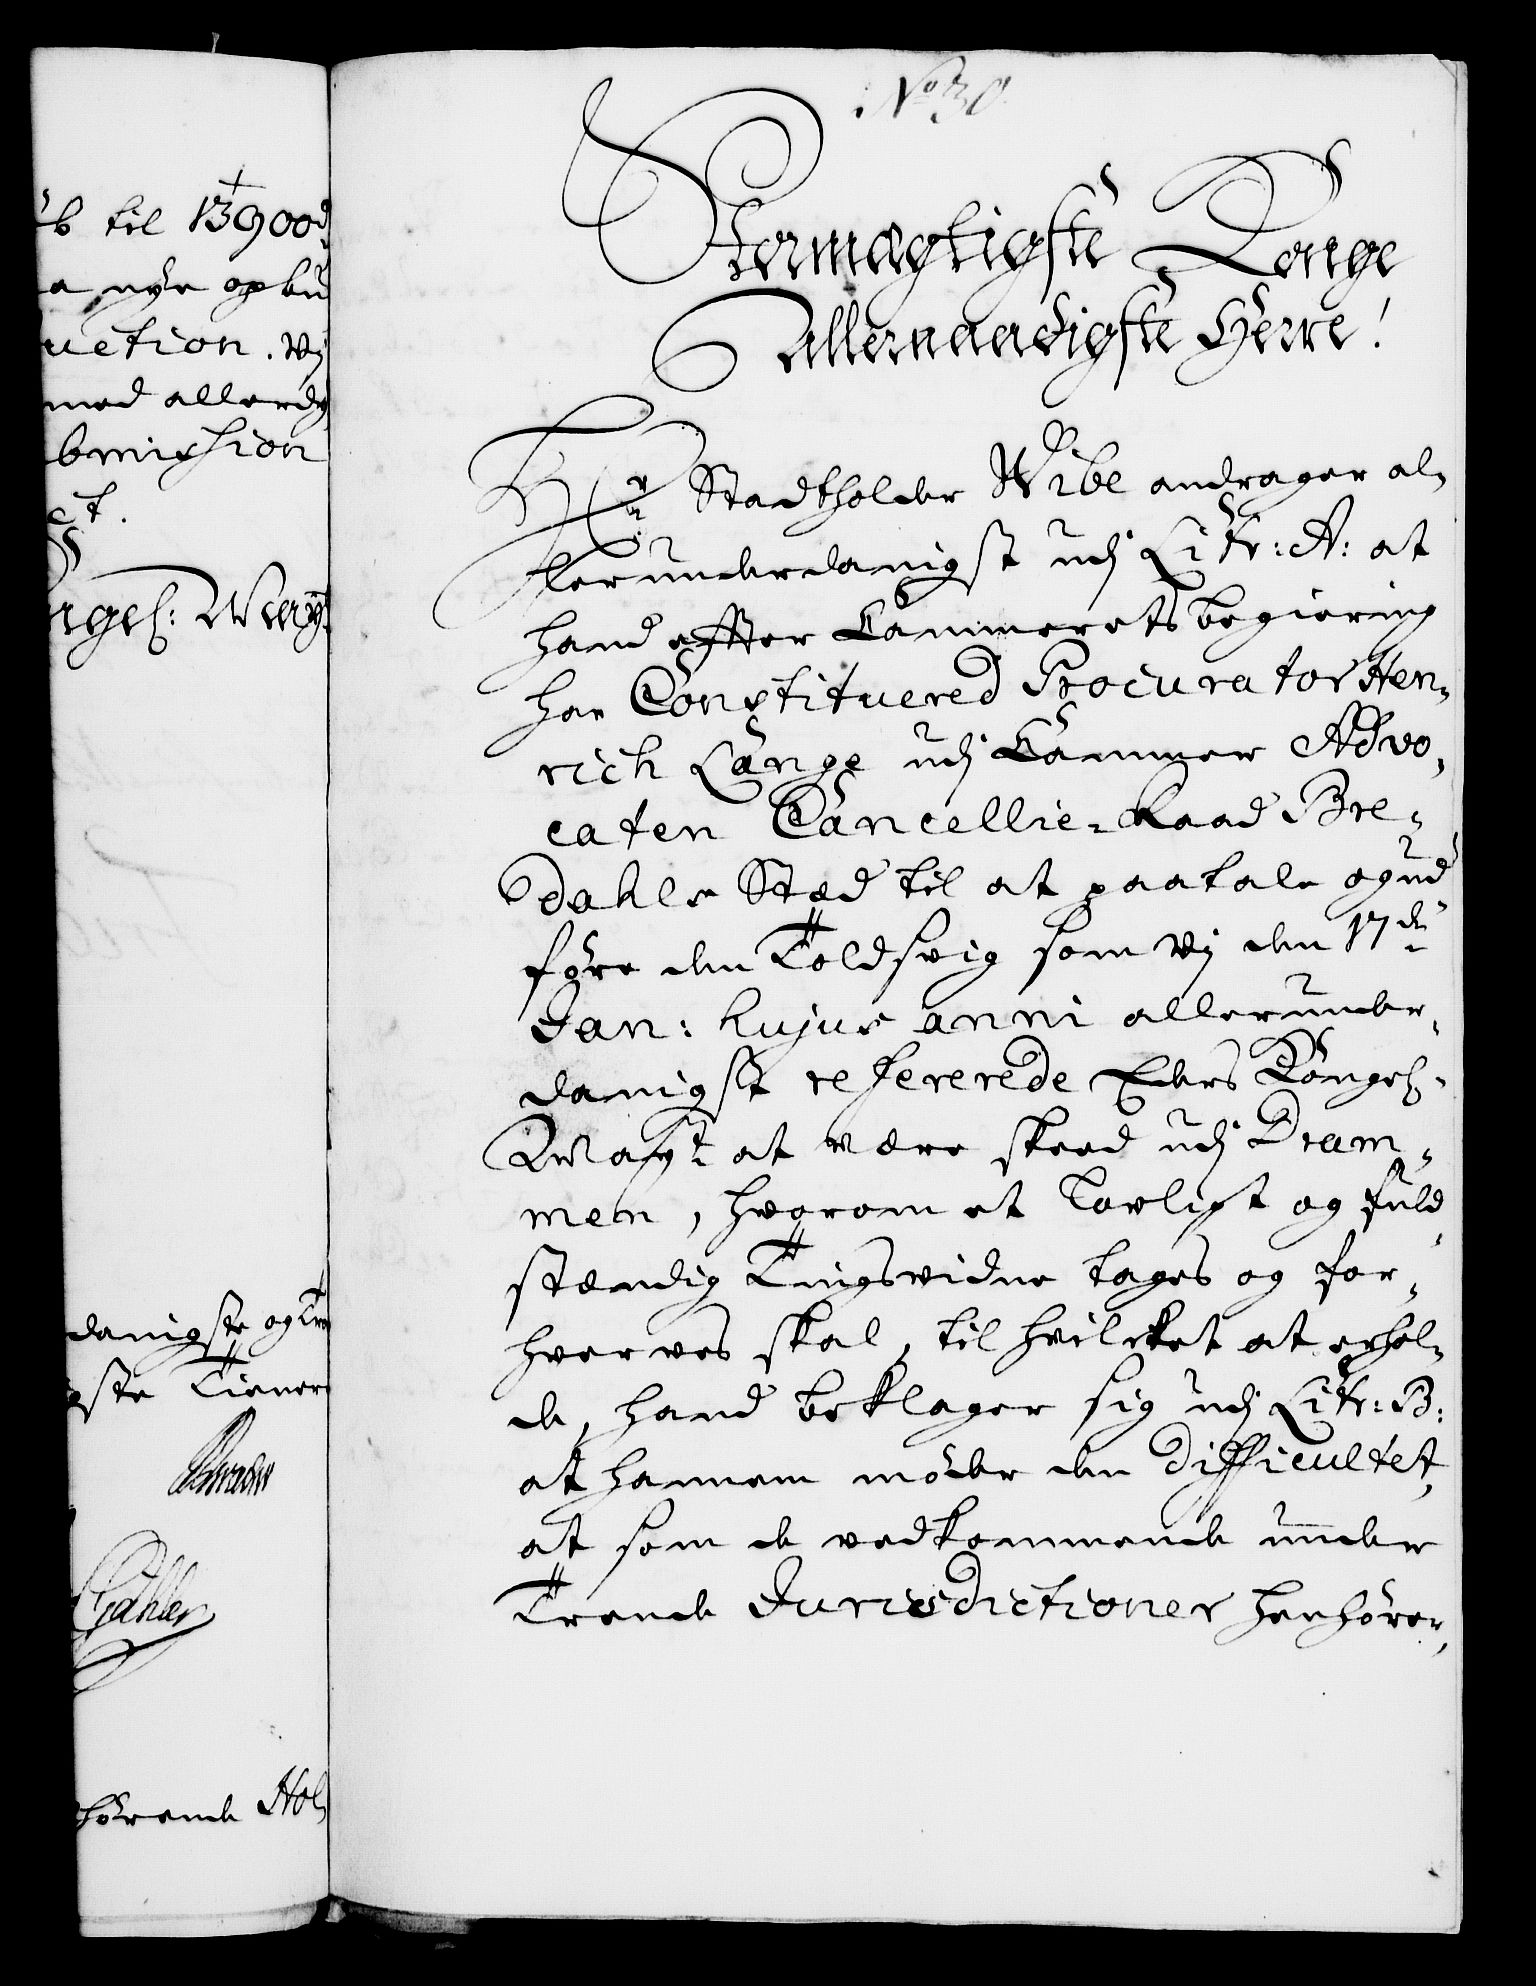 b til 13900d
a nye opbu
uction. vj
med allerdy
bmission
ct.
ngel: May
danigste og tro
gste Tienere
Gähler
hörende Hol
No 30
Stormægtigste Konge
Allernaadigste Herre!
Hr Stadtholder Wibe andrager al-
lerunderdanigst udj Litr: A: at
hand efter Cammerets begiering
har Constituered Procurator Hen-
rich Lange udj Cammer Advo-
caten Cancellie-Raad Bre-
dahls Stæd til at paatale og ud-
före den Toldsvig som vj den 17de
Jan: hujus anni allerunder-
danigst refererede Eders Kongel:
Mayt at være skeed udj Dram-
men, hvorom et lovligt og fuld-
stændig Tingsvidne tages og for-
hverves skal, til hvilcket at erhol-
de, hand beklager sig udj Litr: B:
at hannem möder den difficultet,
at som de vedkommende under
Trende Jurisdictioner henhörer,